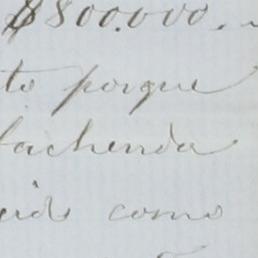 $800.000.
to porque
fachenda
ido como